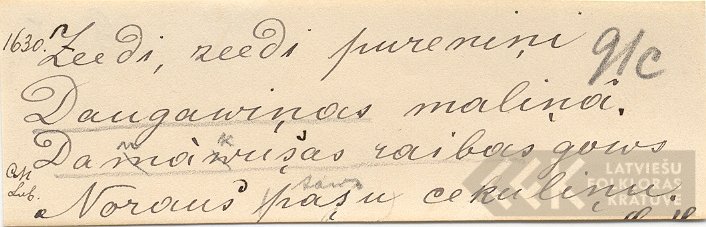 1630. Zeedi, zeedi pureniņi 91c
Daugawiņas maliņâ.
Damârušas raibas gows
CM Lub. Noraus pašu cekuliņu.
sawu
LATVIEŠU
FOLKLORAS
KRĀTUVE